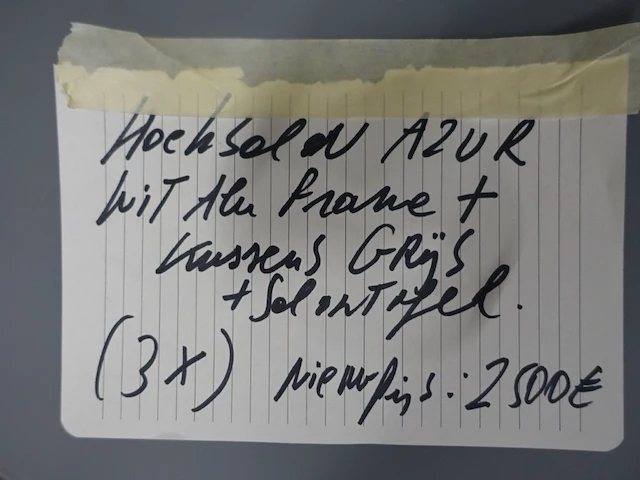 HoekSalon AZUR
WiT Alu Frame +
Kussens GRijS
+ SalonTafel.
(3x) Nieuwprijs: 2500€